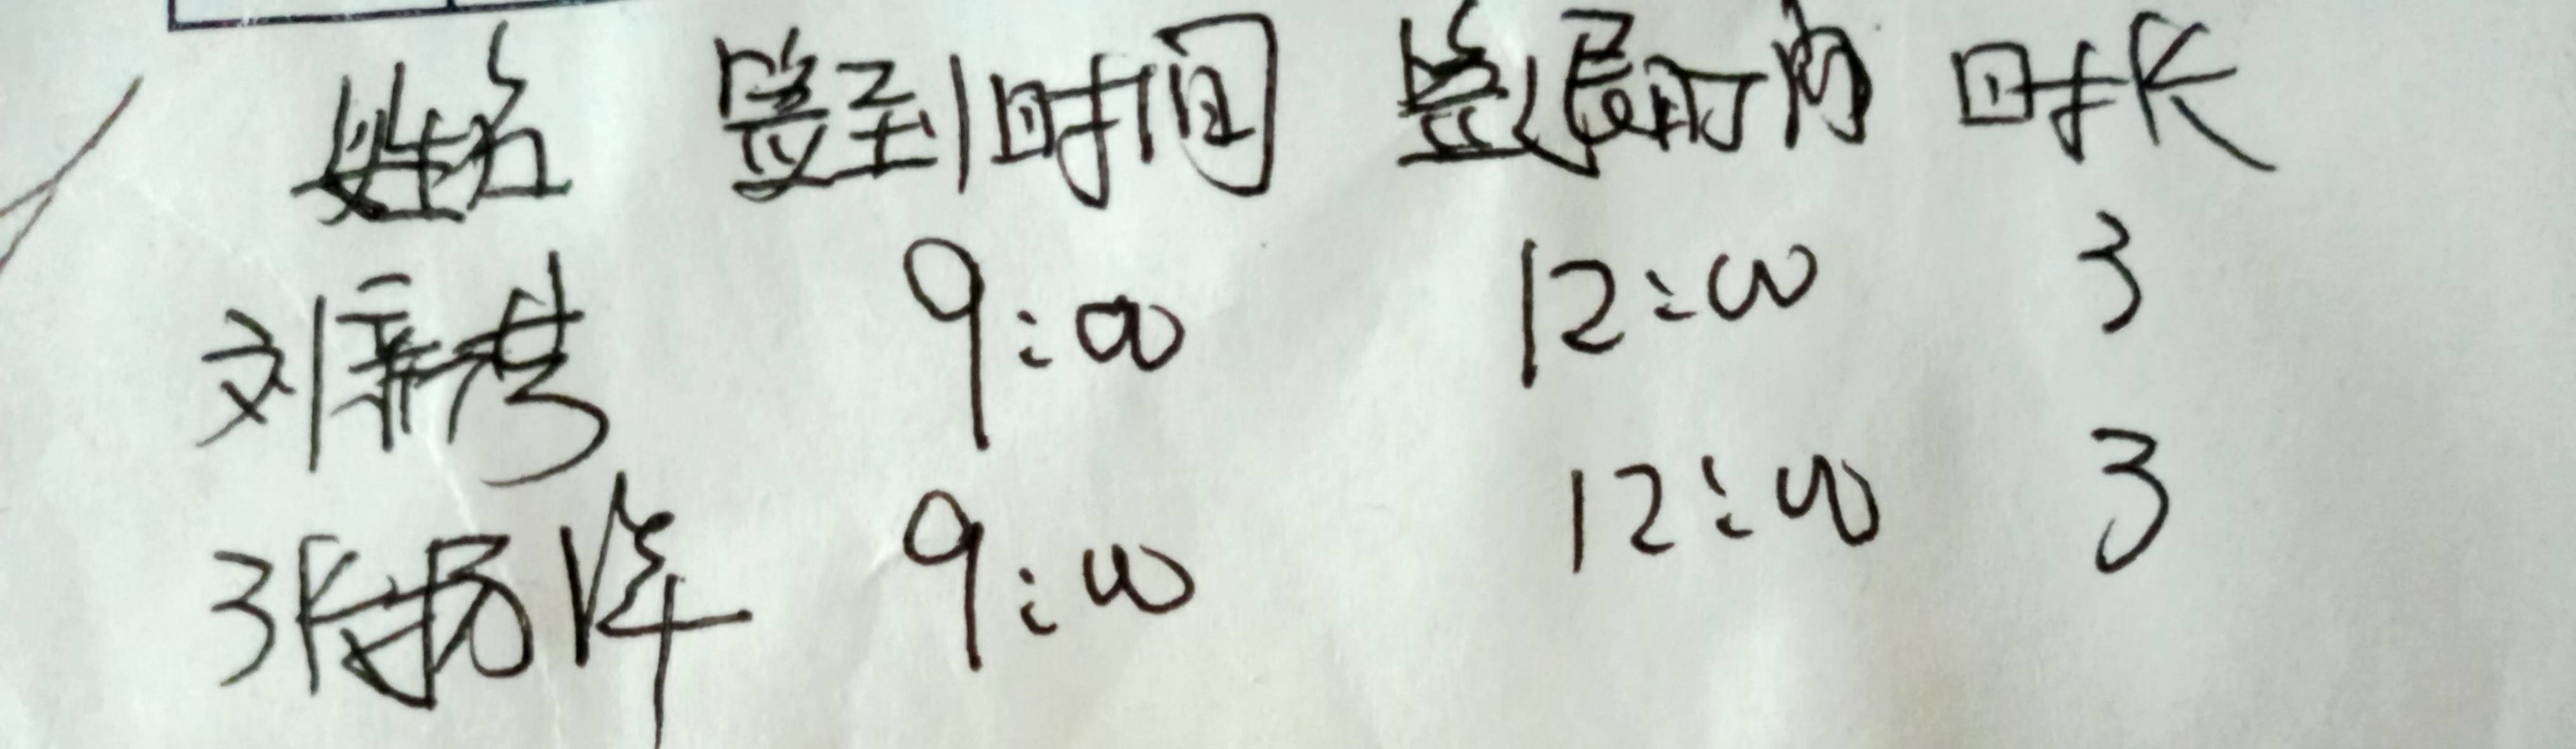 姓名 签到时间 签退时间 时长
刘 9:00 12:00 3
张扬 9:00 12:00 3